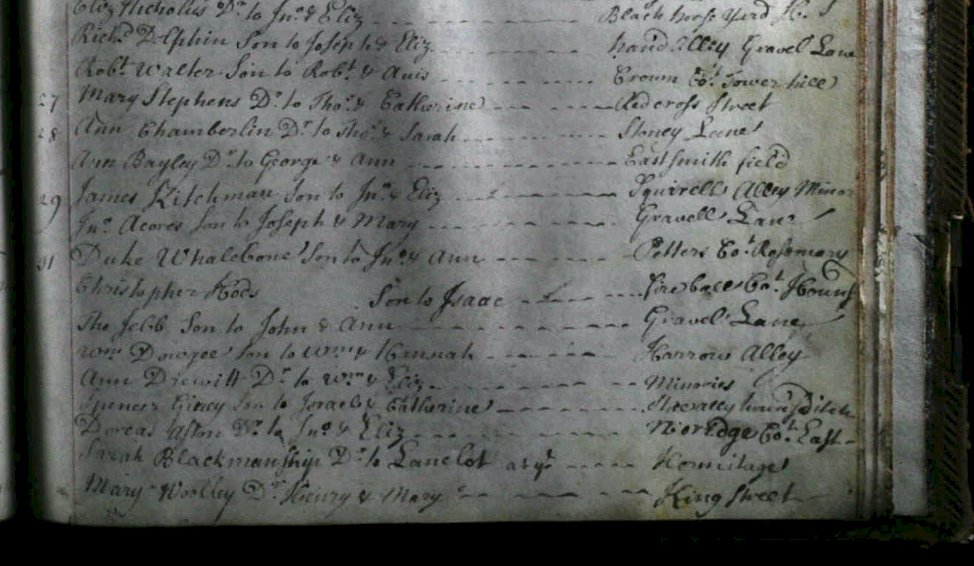 Eliz Nicholus Dr. to Jno. & Eliz Black horse Yard
Richd. Dolphin Son to Joseph & Eliz hand Alley Gravel Lane
Robt. Walter Son to Robt. & Avis Crown Cot. Tower hill
27 Mary Stephens Dr. to Tho. & Catherine Redcross Street
28 Ann Chamberlin Dr. to Tho. & Sarah Stoney Lane
Ann Bayley Dr. to George & Ann East Smith field
29 James Kitchman Son to Jno. & Eliz Squirrell Alley Minor
Jno. Acores Son to Joseph & Mary Gravell Lane
31 Duke Whalebone Son to Jno. & Ann Potters Cot. Rosemary
Christopher Son to Isaac Fireball Cot. Hounds
Tho Jebb Son to John & Ann Gravel Lane
Wm Dowgee Son to Wm & Hannah Harrow Alley
Ann Drewitt Dr. to Wm. & Eliz Minories
Spencer Son to Israel & Catherine houndsditch
Dorcas Aston Dr. to Jno. & Eliz Cot. East
Sarah Blackmanship Dr. to Lancelot Hermitage
Mary Woolley Dr. Henry & Mary King Street